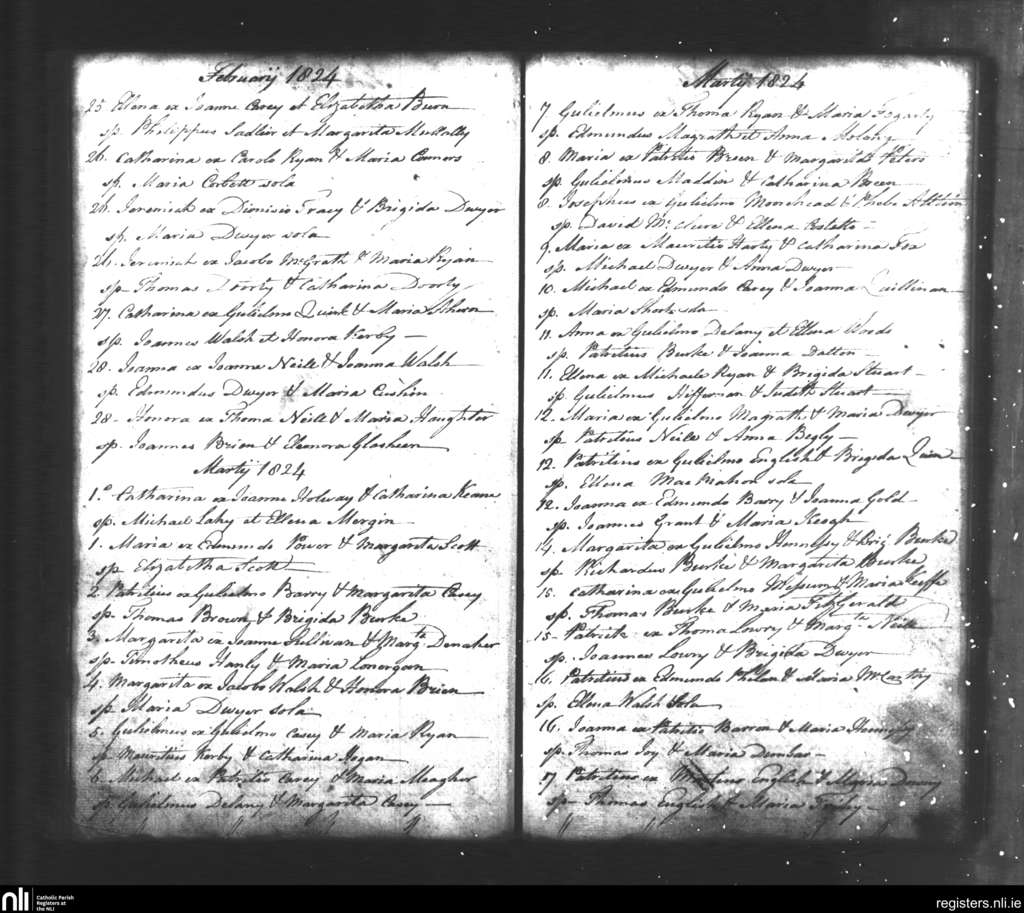 February 1824
25 Ellena ex Joanne Carey et Elizabetha
sp. Philippus Sadleir et Margarita Mullally
26. Catharina ex Carolo Ryan & Maria Connors
sp. Maria Corbett sola
26. Jeremiah ex Dionisio Tracy & Brigida Dwyer
sp. Maria Dwyer sola
26. Jeremiah ex Jacobo McGrath & Maria Ryan
sp. Thomas Doorly & Catharina Doorly
27. Catharina ex Gulielmo Quirk & Maria
sp. Joannes Walsh et Honora Kerby
28. Joanna ex Joanne Neill & Joanna Walsh
sp. Edmundus Dwyer & Maria Cushin
28 Honora ex Thoma Neill & Maria Haughter
sp. Joannes Brien & Eleonora Glasheen
Martij 1824
1.o Catharina ex Joanne Holway & Catharina Keane
sp. Michael Lahy et Ellena Mergin
1. Maria ex Edmundo Power & Margarita Scott
sp Elizabetha Scott
2 Patritius ex Gulielmo Barry & Margarita Casey
sp. Thomas Brown & Brigida Burke
3. Margarita ex Joanne Sullivan & Margta Denaher
sp. Timotheus Hanly & Maria Lonergan
4. Margarita ex Jacobo Walsh & Honora Brien
sp Maria Dwyer sola
5. Gulielmus ex Gulielmo Casey & Maria Ryan
sp Mauritius Kerby & Catharina Hogan
6. Michael ex Patritio Carey & Maria Meagher
sp. Gulielmus Delany & Margarita Casey
Martij 1824
7. Gulielmus ex Thoma Ryan & Maria Fogarty
sp. Edmundus Magrath et Anna
8. Maria ex Patritio Breen & Margarita Peters
sp. Gulielmus Maddin & Catharina Breen
8. Josephus ex Gulielmo Moorehead & Phebe
sp. David McClure & Ellena
9. Maria ex Mauritio Harty & Catharina Fox
sp. Michael Dwyer & Anna Dwyer
10. Michael ex Edmundo Carey & Joanna Quillinan
sp. Maria Shorte sola
11. Anna ex Gulielmo Delany et Ellena Woods
sp. Patritius Burke & Joanna Dalton
11. Ellena ex Michaele Ryan & Brigida Stuart
sp. Gulielmus Heffernan & Judith Stuart
12. Maria ex Gulielmo Magrath & Maria Dwyer
sp Patritius Neill & Anna Begly
12. Patritius ex Gulielmo English & Brigida Quinn
sp. Ellena MacMahon sola
12. Joanna ex Edmundo Barry & Joanna Gold
sp. Joannes Grant & Maria Keogh
14. Margarita ex Gulielmo Hennessy & Brig Burke
sp. Richardus Burke & Margarita Burke
15. Catharina ex Gulielmo & Maria Keeffe
sp. Thomas Burke & Maria FitzGerald
15. Patritk ex Thoma Lowry & Margta Neill
sp. Joannes Lowry & Brigida Dwyer
16. Patritius ex Edmundo Phelan & Maria McCarthy
sp. Ellena Walsh Sola
16. Joanna ex Patritio Barron & Maria
sp. Thomas Foy & Maria Dunbar
17 Patritius ex English &
sp. Thomas English & Maria
nli
Catholic Parish
Registers at
the NLI
registers.nli.ie